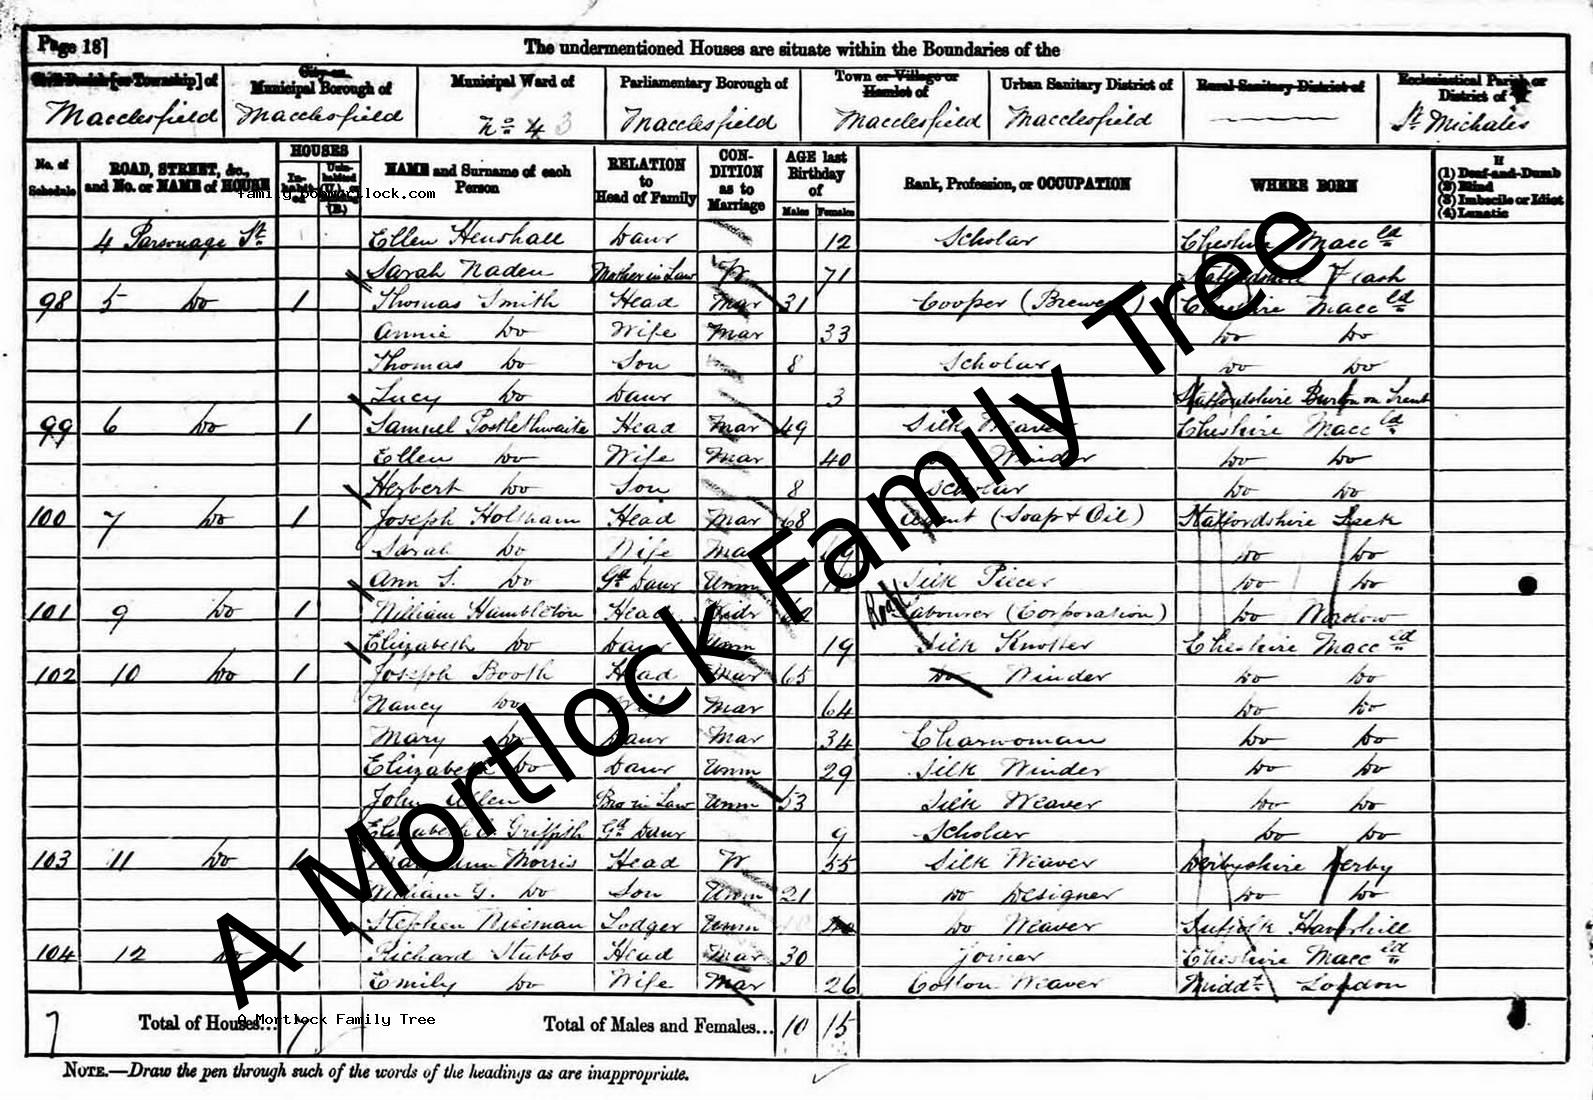 Page 18]
The undermentioned Houses are situate within the Boundaries of the
Civil Parish [or Township] of City or Municipal Borough of Municipal Ward of Parliamentary Borough of Town or Village or Hamlet of Urban Sanitary District of Rural Sanitary District of Ecclesiastical Parish or District of
Macclesfield Macclesfield No 4 3 Macclesfield Macclesfield Macclesfield St Michales
No. of Schedule ROAD, STREET, &c., and No. or NAME of HOUSE HOUSES Inhabited Uninhabited (U.), or Building (B.) NAME and Surname of each Person RELATION to Head of Family CONDITION as to Marriage AGE last Birthday of Males Females Rank, Profession, or OCCUPATION WHERE BORN If (1) Deaf-and-Dumb (2) Blind (3) Imbecile or Idiot (4) Lunatic
family.bobmortlock.com
4 Parsonage St Ellen Henshall Daur 12 Scholar Cheshire Macc ld
Sarah Naden Mother in Law W 71 Staffordshire Flash
98 5 Do 1 Thomas Smith Head Mar 31 Cooper (Brewery) Cheshire Macc ld
Annie Do Wife Mar 33 Do Do
Thomas Do Son 8 Scholar Do Do
Lucy Do Daur 3 Staffordshire Burton on Trent
99 6 Do 1 Samuel Postlethwaite Head Mar 49 Silk Weaver Cheshire Macc ld
Ellen Do Wife Mar 40 Winder Do Do
Herbert Do Son 8 Scholar Do Do
100 7 Do 1 Joseph Holsham Head Mar 68 Agent (Soap + Oil) Staffordshire Leek
Sarah Do Wife Mar Do Do
Ann S. Do Gd Daur Unm Silk Piecer Do Do
101 9 Do 1 William Hambleton Head Widr Road Labourer (Corporation) Do
Elizabeth Do Daur Unm 19 Silk Knotter Cheshire Macc ld
102 10 Do 1 Joseph Booth Head Mar 65 Do Winder Do Do
Nancy Do Wife Mar 64 Do Do
Mary Do Daur Mar 34 Charwoman Do Do
Elizabeth Do Daur Unm 29 Silk Winder Do Do
John Allen Bro in Law Unm 53 Silk Weaver Do Do
Elizabeth Griffith Gd Daur 9 Scholar Do Do
103 11 Do 1 Mary Ann Morris Head W 55 Silk Weaver Derbyshire Derby
William G. Do Son Unm 21 Do Designer Do Do
Stephen Lodger Unm Do Weaver Suffolk Haverhill
104 12 Do 1 Richard Stubbs Head Mar 30 Joiner Cheshire Macc ld
Emily Do Wife Mar 26 Cotton Weaver Middx London
7 Total of Houses... 7 Total of Males and Females... 10 15
A Mortlock Family Tree
NOTE.—Draw the pen through such of the words of the headings as are inappropriate.
A Mortlock Family Tree